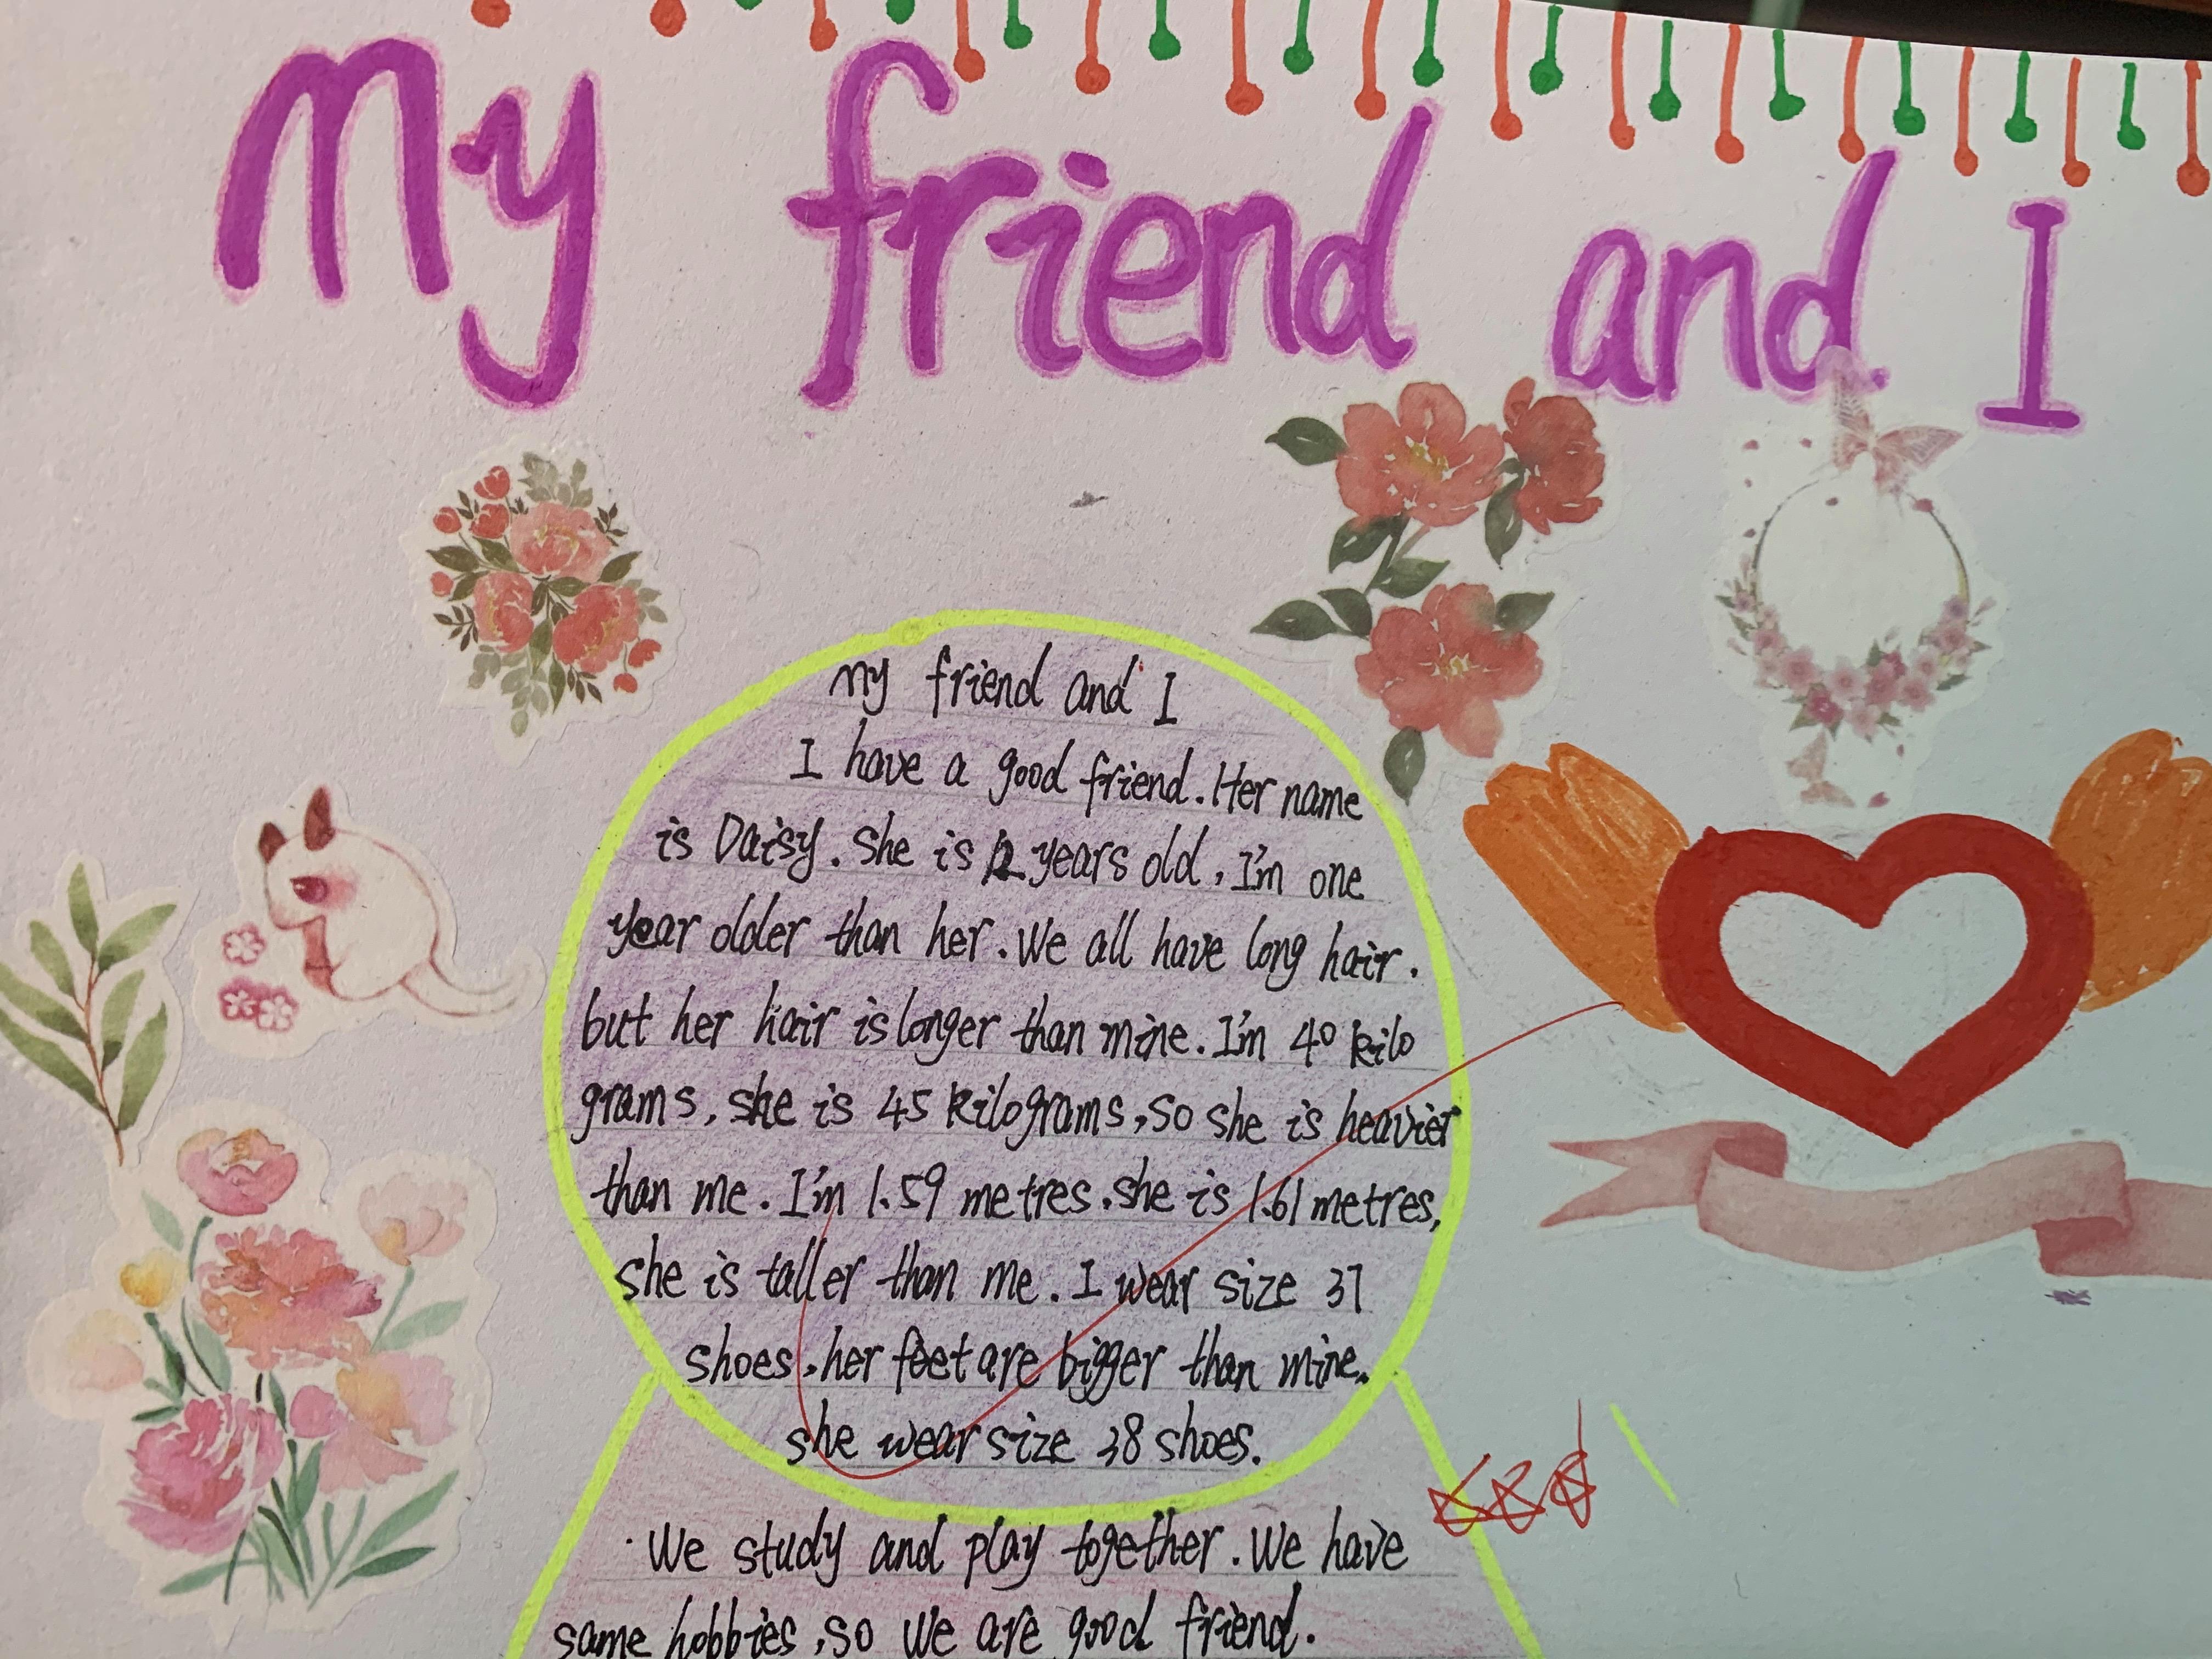 My friend and I
my friend and I
I have a good friend. Her name
is Daisy. she is 12 years old, I'm one
year older than her. We all have long hair.
but her hair is longer than mine. I'm 40 kilo
grams, she is 45 kilograms, so she is heavier
than me. I'm 1.59 metres. she is 1.61 metres,
she is taller than me. I wear size 37
shoes, her feet are bigger than mine.
she wear size 38 shoes.
We study and play together. We have
same hobbies, so we are good friend.